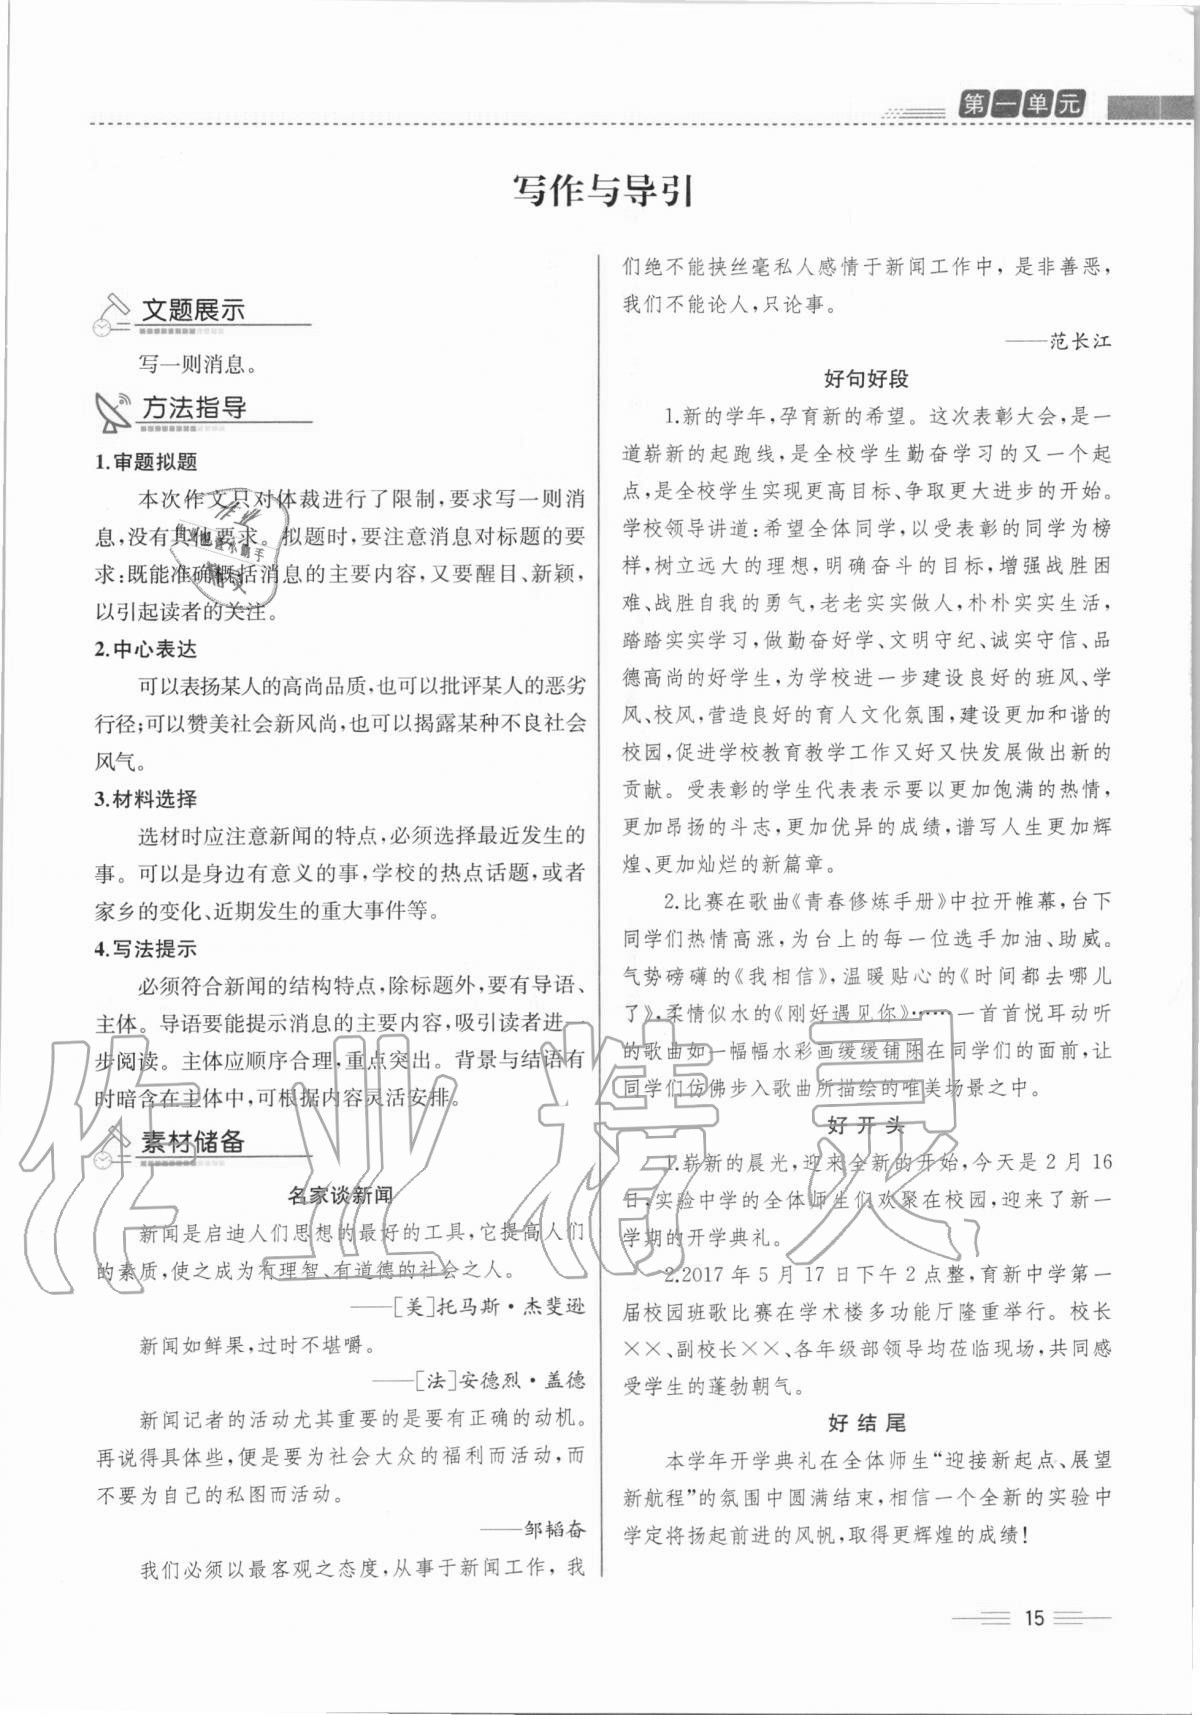 第一单元
写作与导引
文题展示
写一则消息。
方法指导
1.审题拟题
本次作文只对体裁进行了限制,要求写一则消
息,没有其他要求。拟题时,要注意消息对标题的要
求:既能准确概括消息的主要内容,又要醒目、新颖,
以引起读者的关注。
2.中心表达
可以表扬某人的高尚品质,也可以批评某人的恶劣
行径;可以赞美社会新风尚,也可以揭露某种不良社会
风气。
3.材料选择
选材时应注意新闻的特点,必须选择最近发生的
事。可以是身边有意义的事,学校的热点话题,或者
家乡的变化、近期发生的重大事件等。
4.写法提示
必须符合新闻的结构特点,除标题外,要有导语、
主体。导语要能提示消息的主要内容,吸引读者进一
步阅读。主体应顺序合理,重点突出。背景与结语有
时暗含在主体中,可根据内容灵活安排。
素材储备
名家谈新闻
新闻是启迪人们思想的最好的工具,它提高人们
的素质,使之成为有理智、有道德的社会之人。
——[美]托马斯·杰斐逊
新闻如鲜果,过时不堪嚼。
——[法]安德烈·盖德
新闻记者的活动尤其重要的是要有正确的动机。
再说得具体些,便是要为社会大众的福利而活动,而
不要为自己的私图而活动。
——邹韬奋
我们必须以最客观之态度,从事于新闻工作,我
们绝不能挟丝毫私人感情于新闻工作中,是非善恶,
我们不能论人,只论事。
——范长江
好句好段
1.新的学年,孕育新的希望。这次表彰大会,是一
道崭新的起跑线,是全校学生勤奋学习的又一个起
点,是全校学生实现更高目标、争取更大进步的开始。
学校领导讲道:希望全体同学,以受表彰的同学为榜
样,树立远大的理想,明确奋斗的目标,增强战胜困
难、战胜自我的勇气,老老实实做人,朴朴实实生活,
踏踏实实学习,做勤奋好学、文明守纪、诚实守信、品
德高尚的好学生,为学校进一步建设良好的班风、学
风、校风,营造良好的育人文化氛围,建设更加和谐的
校园,促进学校教育教学工作又好又快发展做出新的
贡献。受表彰的学生代表表示要以更加饱满的热情,
更加昂扬的斗志,更加优异的成绩,谱写人生更加辉
煌、更加灿烂的新篇章。
2.比赛在歌曲《青春修炼手册》中拉开帷幕,台下
同学们热情高涨,为台上的每一位选手加油、助威。
气势磅礴的《我相信》,温暖贴心的《时间都去哪儿
了》,柔情似水的《刚好遇见你》……一首首悦耳动听
的歌曲如一幅幅水彩画缓缓铺陈在同学们的面前,让
同学们仿佛步入歌曲所描绘的唯美场景之中。
好开头
1.崭新的晨光,迎来全新的开始,今天是2月16
日,实验中学的全体师生们欢聚在校园,迎来了新一
学期的开学典礼。
2.2017年5月17日下午2点整,育新中学第一
届校园班歌比赛在学术楼多功能厅隆重举行。校长
××、副校长××、各年级部领导均莅临现场,共同感
受学生的蓬勃朝气。
好结尾
本学年开学典礼在全体师生“迎接新起点、展望
新航程”的氛围中圆满结束,相信一个全新的实验中
学定将扬起前进的风帆,取得更辉煌的成绩!
15
作业精灵